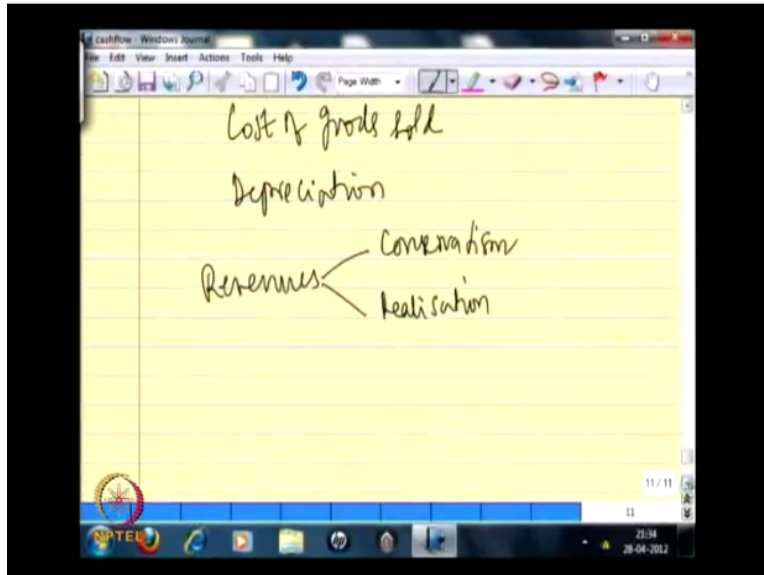 cashflow - Windows Journal
File Edit View Insert Actions Tools Help
Page Width
Cost of goods sold
Depreciation
Conservatism
Revenues
Realisation
11 / 11
11
NPTEL
hp
21:34
28-04-2012